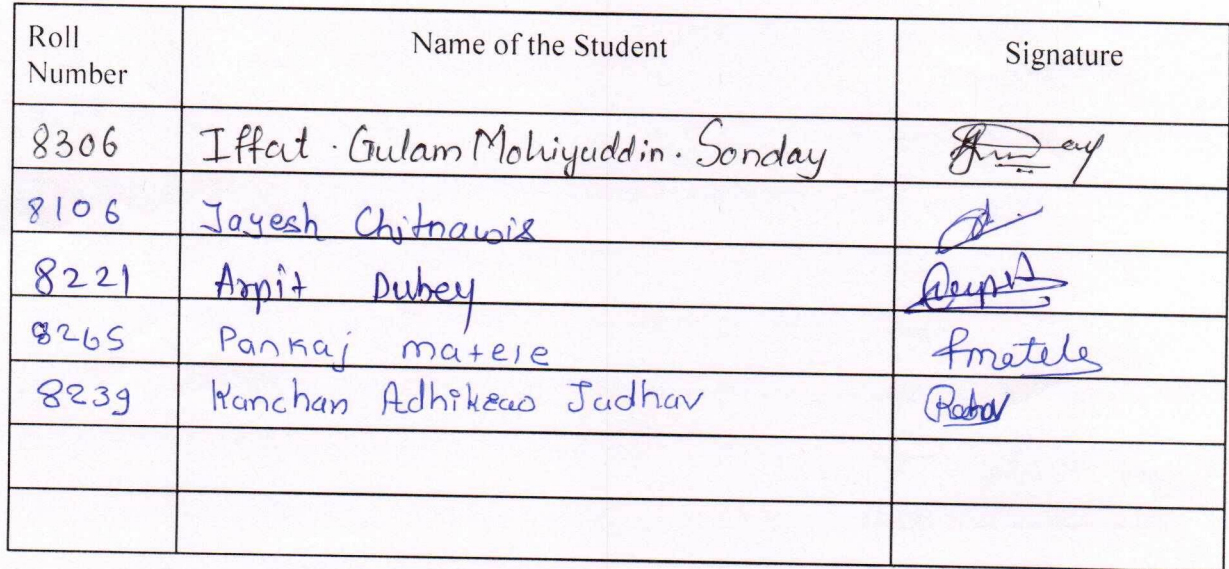 Roll Number Name of the Student Signature
8306 Iffat . Gulam Mohiyuddin . Sonday
8106 Jayesh Chitnawis
8221 Arpit Dubey
8265 Pankaj matele Pmatele
8239 Kanchan Adhikrao Jadhav